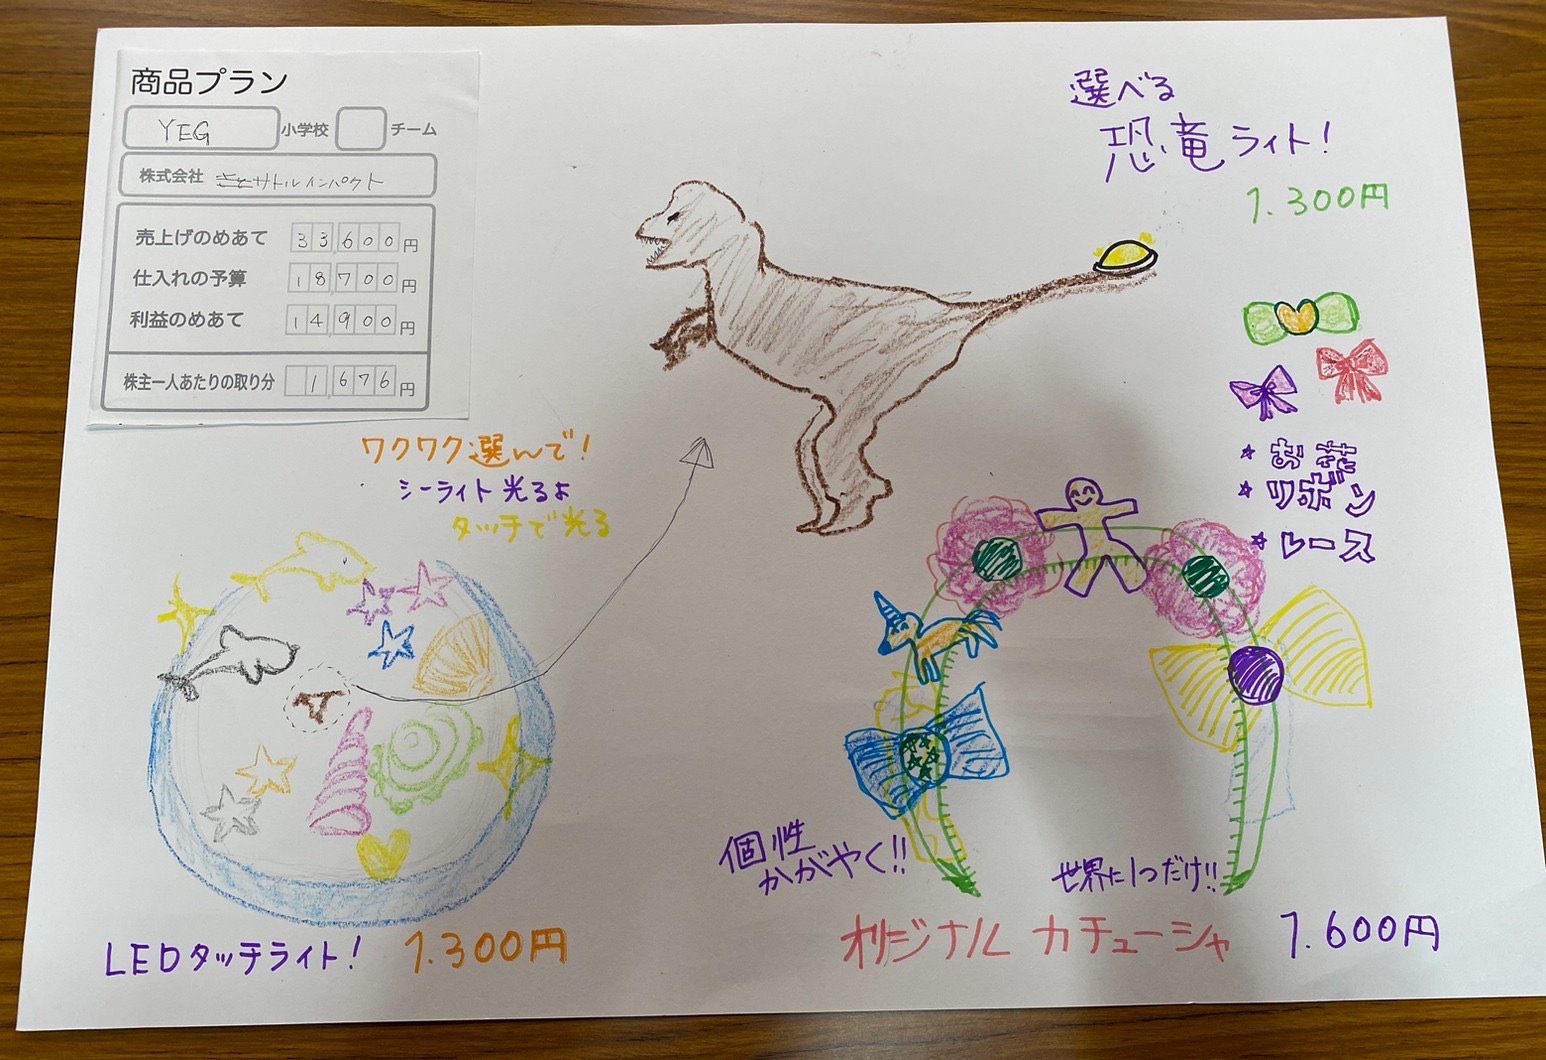 商品プラン
YEG 小学校 チーム
株式会社 サトルインパクト
売上げのめあて 33,600円
仕入れの予算 18,700円
利益のめあて 14,900円
株主一人あたりの取り分 1,676円
選べる
恐竜ライト!
1.300円
ワクワク選んで!
シーライト光るよ
タッチで光る
★お花
★リボン
★レース
個性
かがやく!!
世界に1つだけ!!
LEDタッチライト! 1.300円
オリジナル カチューシャ 1.600円